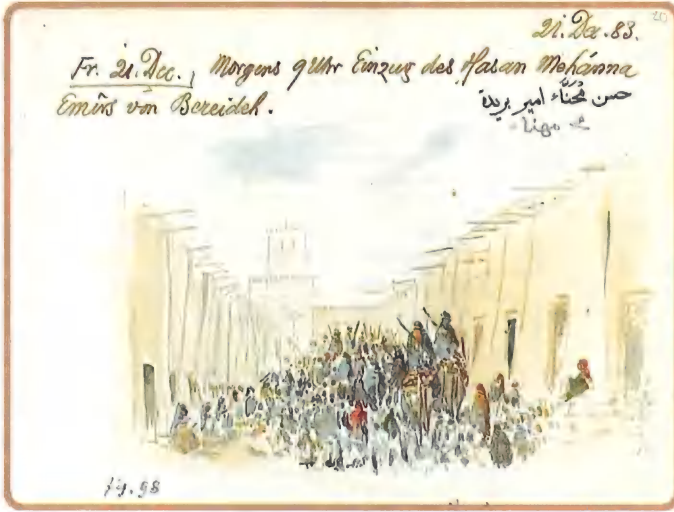 21. Dec. 83.
Fr. 21. Dec., Morgens 9 Uhr Einzug des Hasan Mehánna
Emîrs von Bereideh.
حسن مُهنَّاء امير بريدة
مهنا
fig. 98